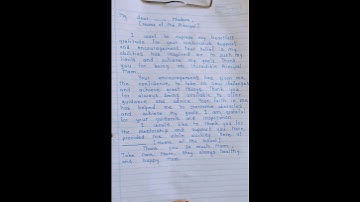 My dear ...... Madam,
[Name of the Principal]
I want to express my heartfelt
gratitude for your continuous support
and encouragement. Your belief in my
abilities has inspired me to push my
limits and achieve my goals. Thank
you for being an incredible Principal
Mam.
Your encouragement has given me
the confidence to take on new challenges
and achieve great things. Thank you
for always being available to offer
guidance and advice. Your faith in me
has helped me to overcome obstacles
and achieve my goals. I am grateful
for your guidance and inspiration.
I would like to thank you for
the leadership and support you have
provided me while working here at
[Name of the School]
Thank you so much mam.
Take care mam. Stay always healthy
and happy mam.